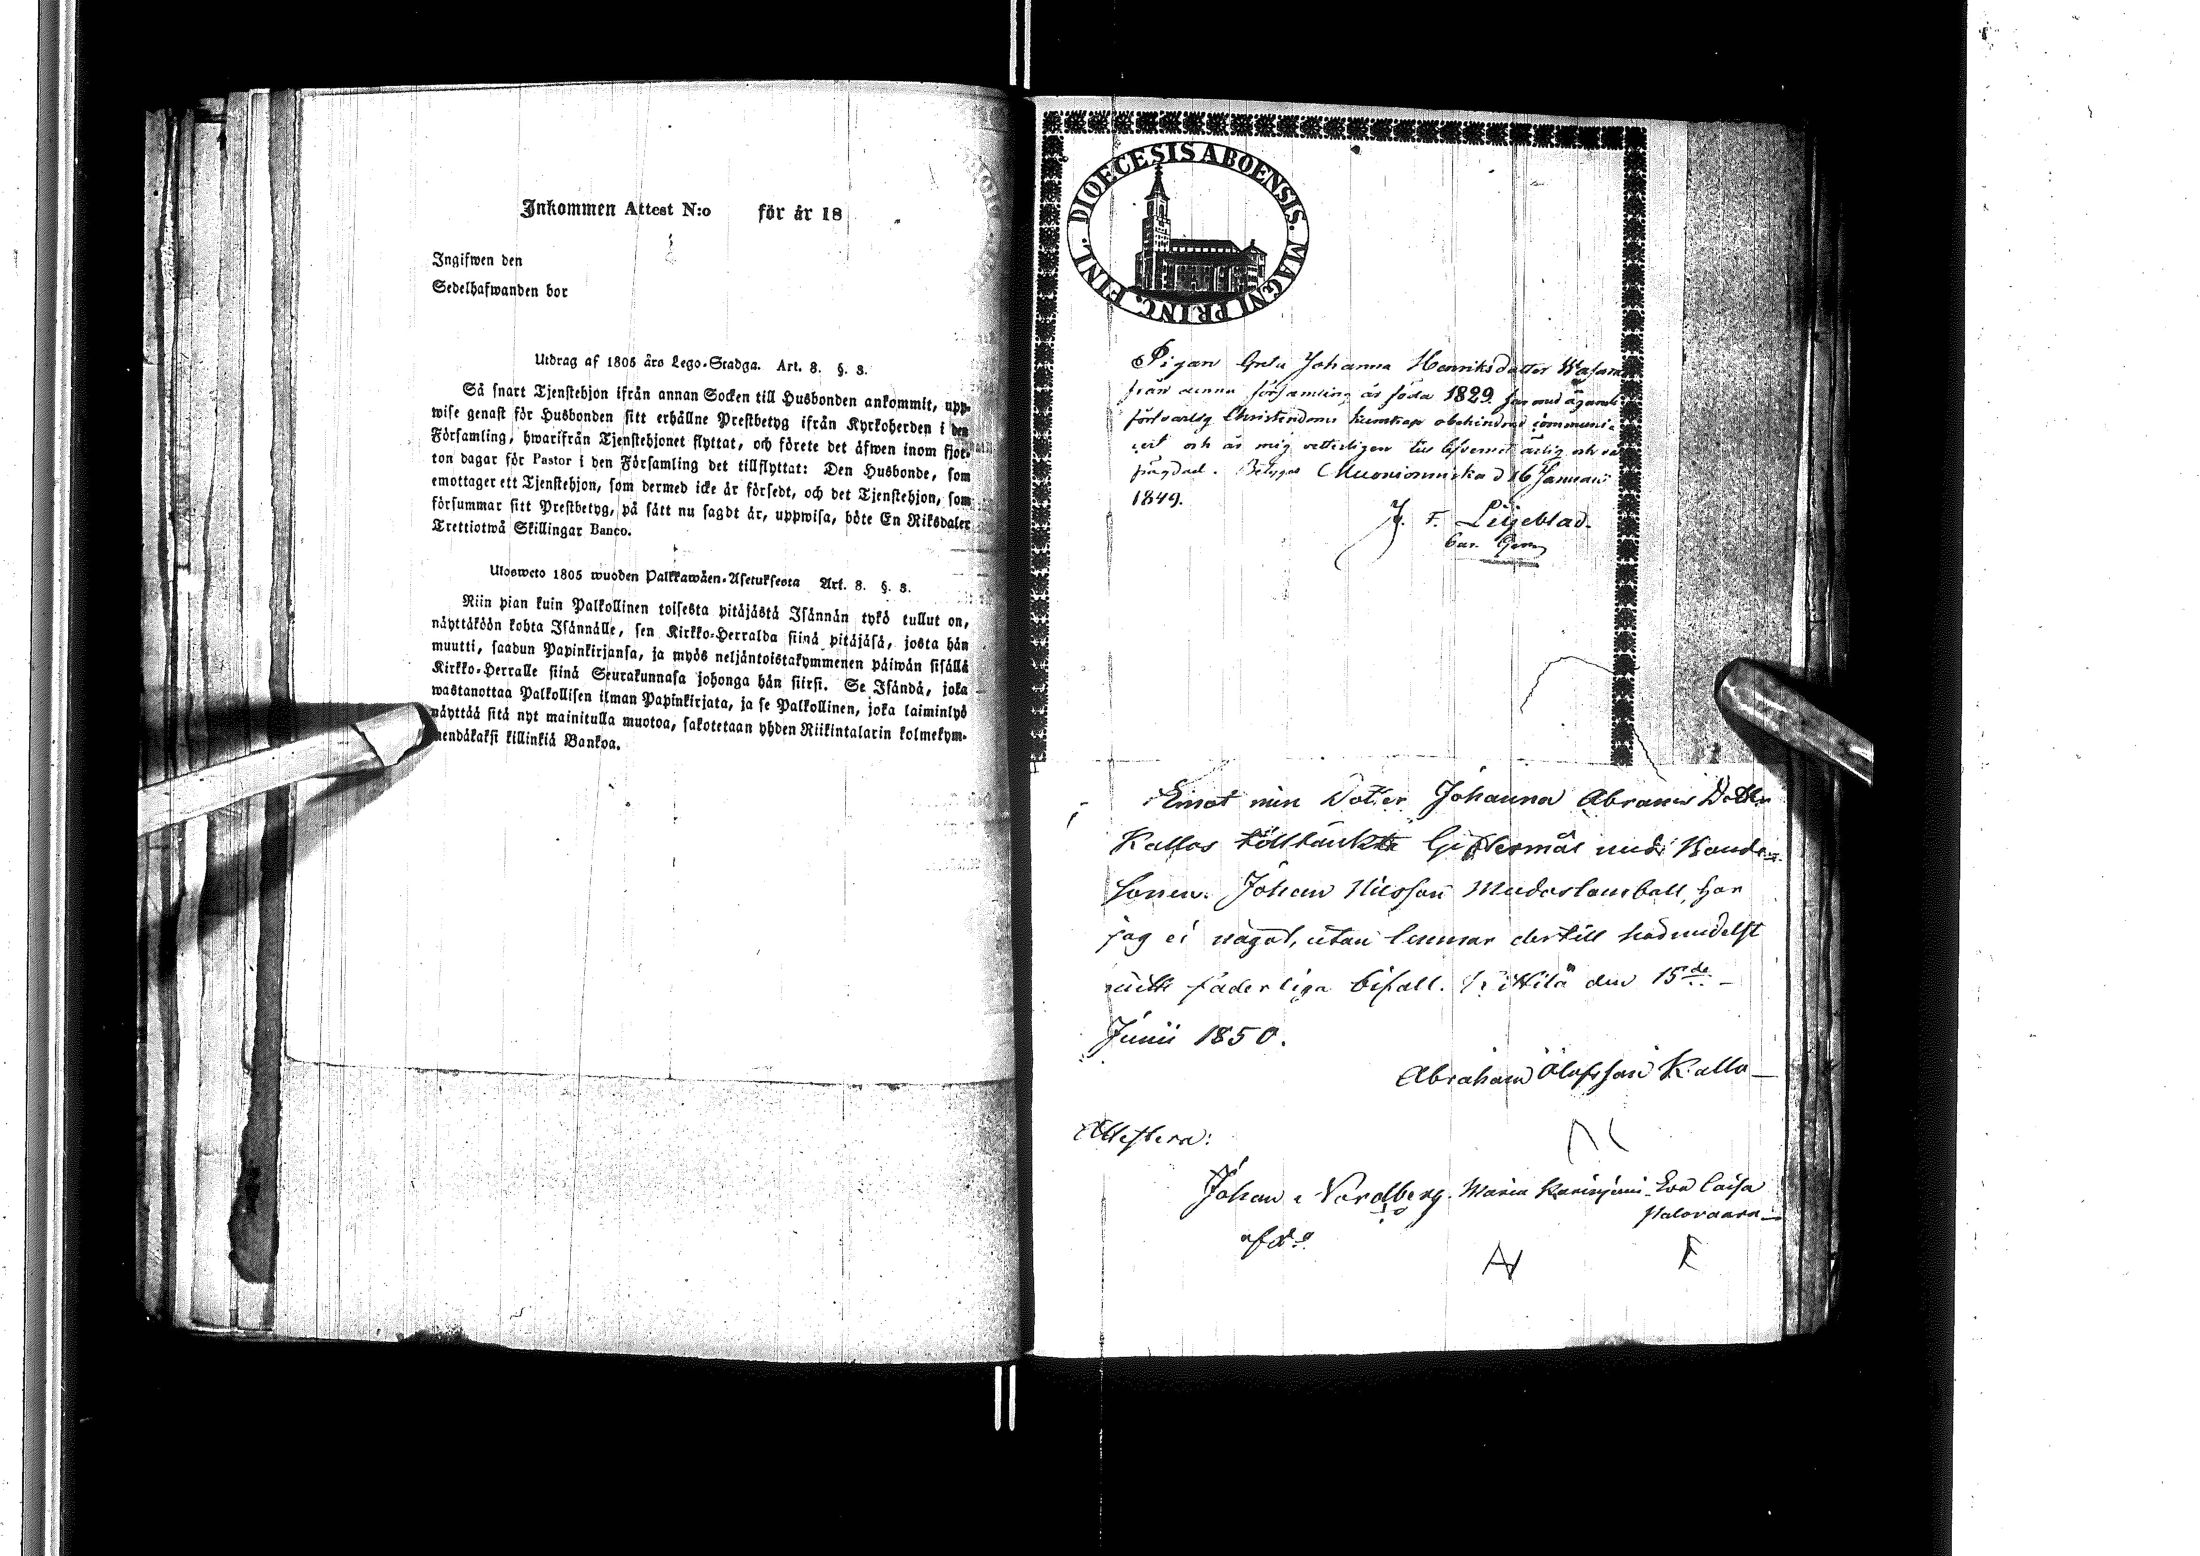 Inkommen Attest N:o för år 18
Ingifwen den
Sedelhafwanden bor
Utdrag af 1805 års Lego-Stadga. Art. 8. §. 8.
Så snart Tjenstehjon ifrån annan Socken till Husbonden ankommit, upp-
wise genast för Husbonden sitt erhållne Prestbetyg ifrån Kyrkoherden i den
Församling, hwarifrån Tjenstehjonet flyttat, och förete det äfwen inom fjor-
ton dagar för Pastor i den Församling det tillflyttat: Den Husbonde, som
emottager ett Tjenstehjon, som dermed icke är försedt, och det Tjenstehjon, som
försummar sitt Prestbetyg, på sätt nu sagdt är, uppwisa, böte En Riksdaler
Trettiotwå Skillingar Banco.
Ulosweto 1805 wuoden Palkkawäen-Asetuksesta Art. 8. §. 8.
Niin pian kuin Palkollinen toisesta pitäjästä Isännän tykö tullut on,
näyttäköön kohta Isännälle, sen Kirkko-Herralda siinä pitäjäsä, josta hän
muutti, saadun Papinkirjansa, ja myös neljäntoistakymmenen päiwän sisällä
Kirkko-Herralle siinä Seurakunnasa johonga hän siirsi. Se Isändä, joka
wastanottaa Palkollisen ilman Papinkirjata, ja se Palkollinen, joka laiminlyö
näyttää sitä nyt mainitulla muotoa, sakotetaan yhden Riikintalarin kolmekym-
mendäkaksi killinkiä Bankoa.
DIOECESIS ABOENSIS. MAGNI PRINC. FINL.
Pigan Greta Johanna Henriksdotter
från denna församling är föda 1829. har med ägande
försvarlig Christendoms kunskap obehindrad communi-
cert och är mig vetterligen till lefvernet ärlig och
frägdad. Betygas Muonionniska d 16 Januari
1849.
J. F. Liljeblad.
Emot min Dotter Johanna Abrams Dotter
Kallos tilltänkta Giftermål med Bonde-
Sonen Johan Nilsson Mudoslompolo, har
jag ei något, utan lemnar dertill härmedelst
mitt faderliga bifall. Kittilä den 15de
Junii 1850.
Abraham Olofsson Kallo
Attestera:
Johan Nordberg. Maria Eva Caisa
Palovaara